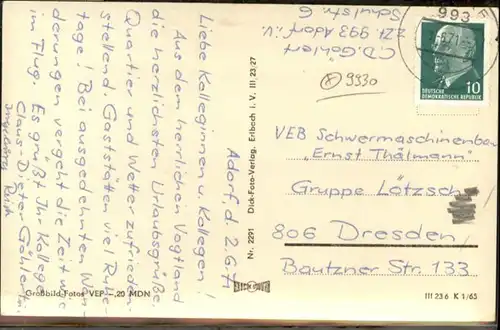 Adorf, d. 2.6.71
Liebe Kolleginnen u. Kollegen!
Aus dem herrlichen Vogtland
die herzlichsten Urlaubsgrüße.
Quartier und Wetter zufrieden-
stellend, Gaststätten viel Ruhe-
tage! Bei ausgedehnten Wan-
derungen vergeht die Zeit wie
im Flug. Es grüßt Ihr Kollege
Claus-Dieter Göhlert
Großbild-Fotos VEP -,20 MDN
Nr. 2291 Dick-Foto-Verlag, Erlbach i. V. III 23/27
C.D. Göhlert
zZt. 993 Adorf i.V.
Schulstr. 6
993
9930
DEUTSCHE
DEMOKRATISCHE REPUBLIK
10
VEB Schwermaschinenbau
"Ernst Thälmann"
Gruppe Lötzsch
806 Dresden
Bautzner Str. 133
III 23 6 K 1/65